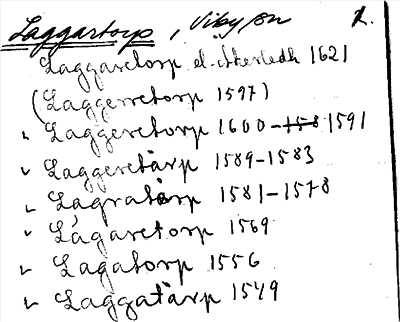 Laggartorp, Viby sn 2.
Laggaretorp el. Åkerledh 1621
(Laggerretorp 1597)
v Laggeretorp 1600-158 1591
v Laggeretårp 1589-1583
v Lagratorp 1581-1578
v Lagaretorp 1569
v Lagatorp 1556
v Laggatårp 1549